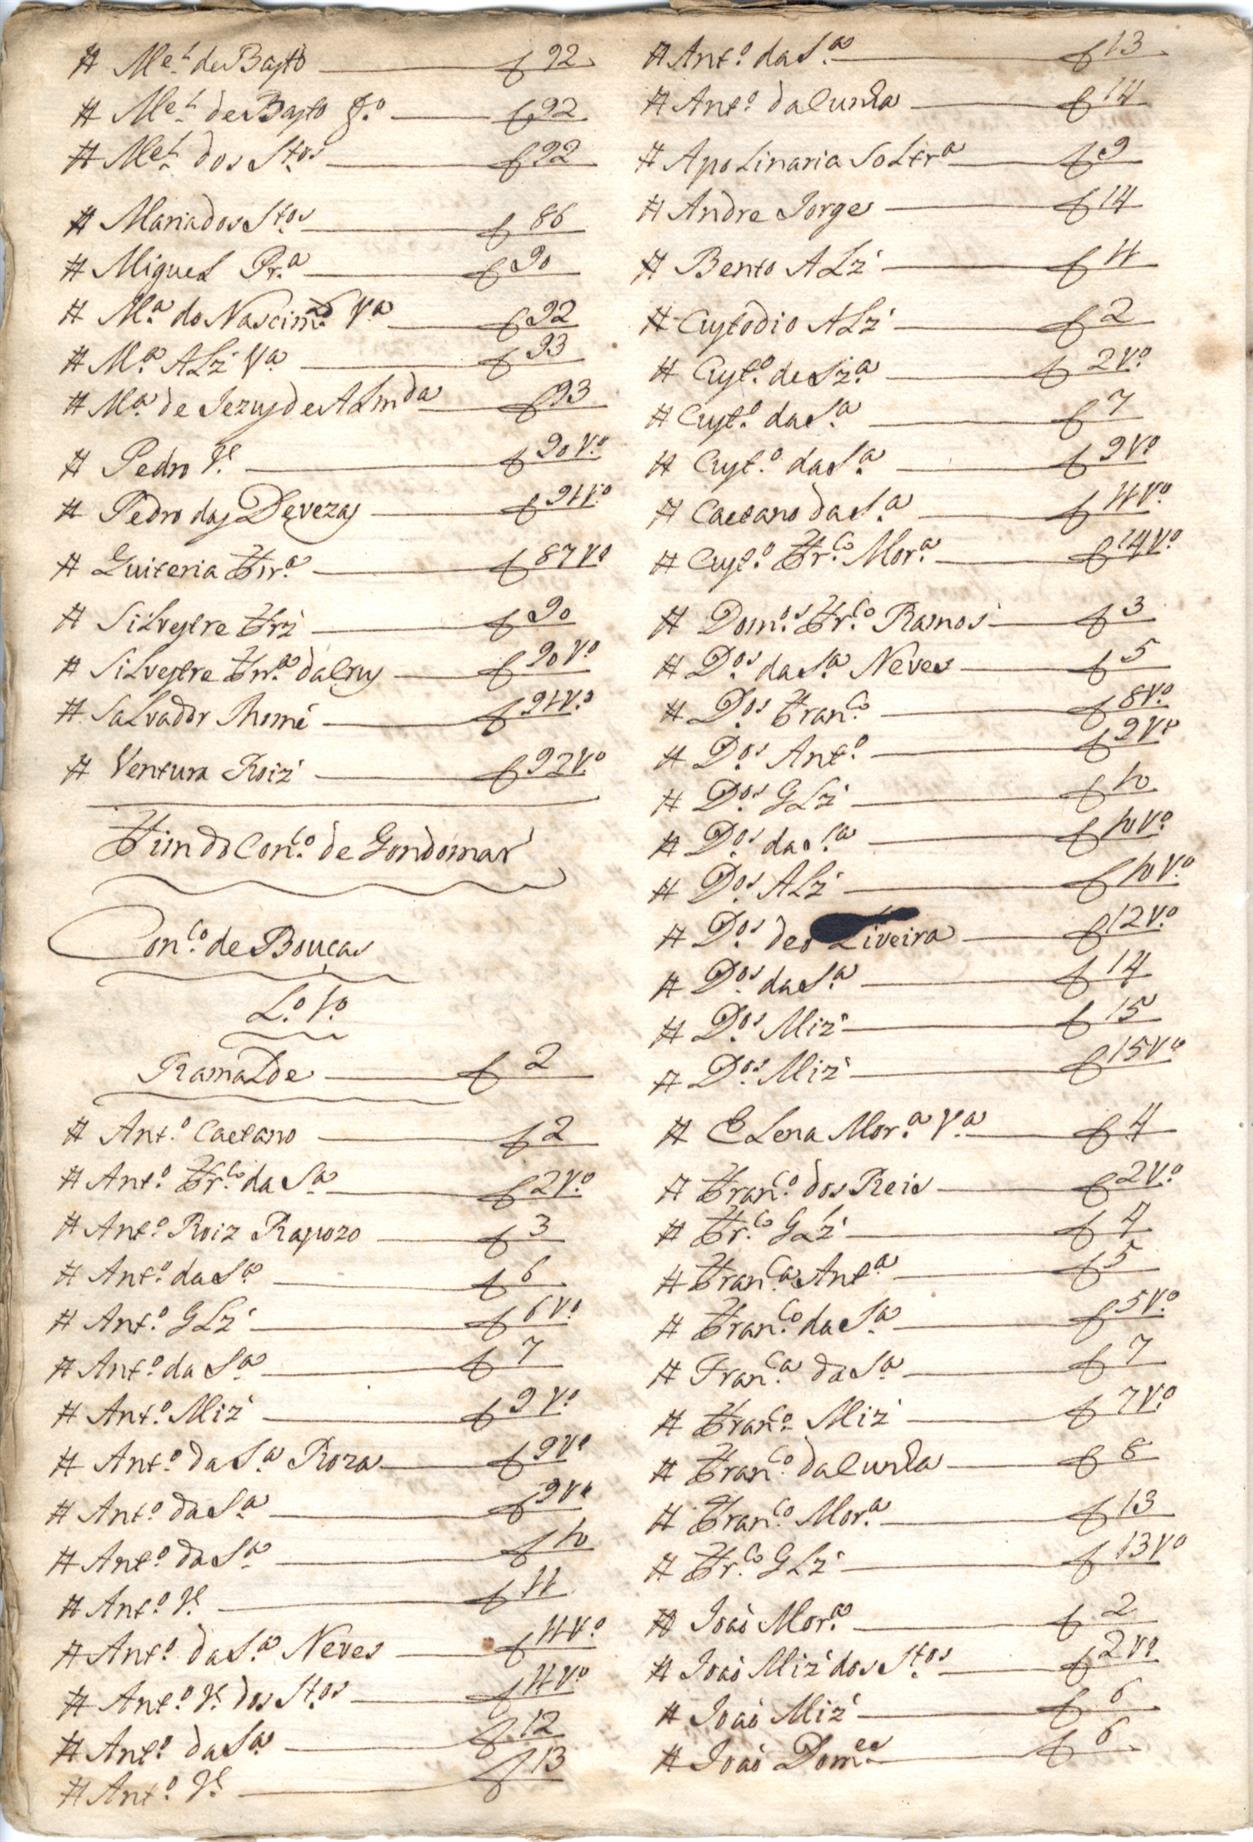 # M.el de Basto — f 92
# M.el de Basto F.o — f 92
# M.el dos S.tos — f 92
# Maria dos S.tos — f 86
# Miguel Pr.a — f 90
# M.a do Nascim.to V.a — f 92
# M.a Alz' V.a — f 93
# M.a de Jezus de Alm.da — f 93
# Pedro V.e — f 90 V.o
# Pedro das Devezas — f 91 V.o
# Quiteria Frr.a — f 87 V.o
# Silvestre Frz' — f 90
# Silvestre Frr.a da Crus — f 90 V.o
# Salvador Thomé — f 91 V.o
# Ventura Roiz' — f 92 V.o
Fim do Con.co de Gondomar
Con.co de Bouças
L.o 1.o
Ramalde — f 2
# Ant.o Caetano — f 2
# Ant.o Fr.co da S.a — f 2 V.o
# Ant.o Roiz Rapozo — f 3
# Ant.o da S.a — f 6
# Ant.o Glz' — f 6 V.o
# Ant.o da S.a — f 7
# Ant.o Miz' — f 9 V.o
# Ant.o da S.a Roza — f 9 V.o
# Ant.o da S.a — f 9 V.o
# Ant.o da S.a — f 10
# Ant.o V.e — f 11
# Ant.o da S.a Neves — f 11 V.o
# Ant.o V.e dos S.tos — f 11 V.o
# Ant.o da S.a — f 12
# Ant.o V.e — f 13
# Ant.o da S.a — f 13
# Ant.o da Cunha — f 14
# Apolinaria Soltr.a — f 9
# Andre Jorge — f 14
# Bento Alz' — f 11
# Custodio Alz' — f 2
# Cust.o de Sz.a — f 2 V.o
# Cust.o da S.a — f 7
# Cust.o da S.a — f 9 V.o
# Caetano da S.a — f 11 V.o
# Cust.o Fr.co Mor.a — f 14 V.o
# Dom.os Fr.co Ramos — f 3
# D.os da S.a Neves — f 5
# D.os Fran.co — f 8 V.o
# D.os Ant.o — f 9 V.o
# D.os Glz' — f 10
# D.os da S.a — f 10 V.o
# D.os Alz' — f 10 V.o
# D.os de oliveira — f 12 V.o
# D.os da S.a — f 14
# D.os Miz' — f 15
# D.os Miz' — f 15 V.o
# Elena Mor.a V.a — f 4
# Fran.co dos Reis — f 2 V.o
# Fr.co Glz' — f 4
# Fran.ca Ant.a — f 5
# Fran.co da S.a — f 5 V.o
# Fran.ca da S.a — f 7
# Fran.co Miz' — f 7 V.o
# Fran.co da Cunha — f 8
# Fran.co Mor.a — f 13
# Fr.co Glz' — f 13 V.o
# João Mor.a — f 2
# João Miz' dos S.tos — f 2 V.o
# João Miz' — f 6
# João Dom.es — f 6